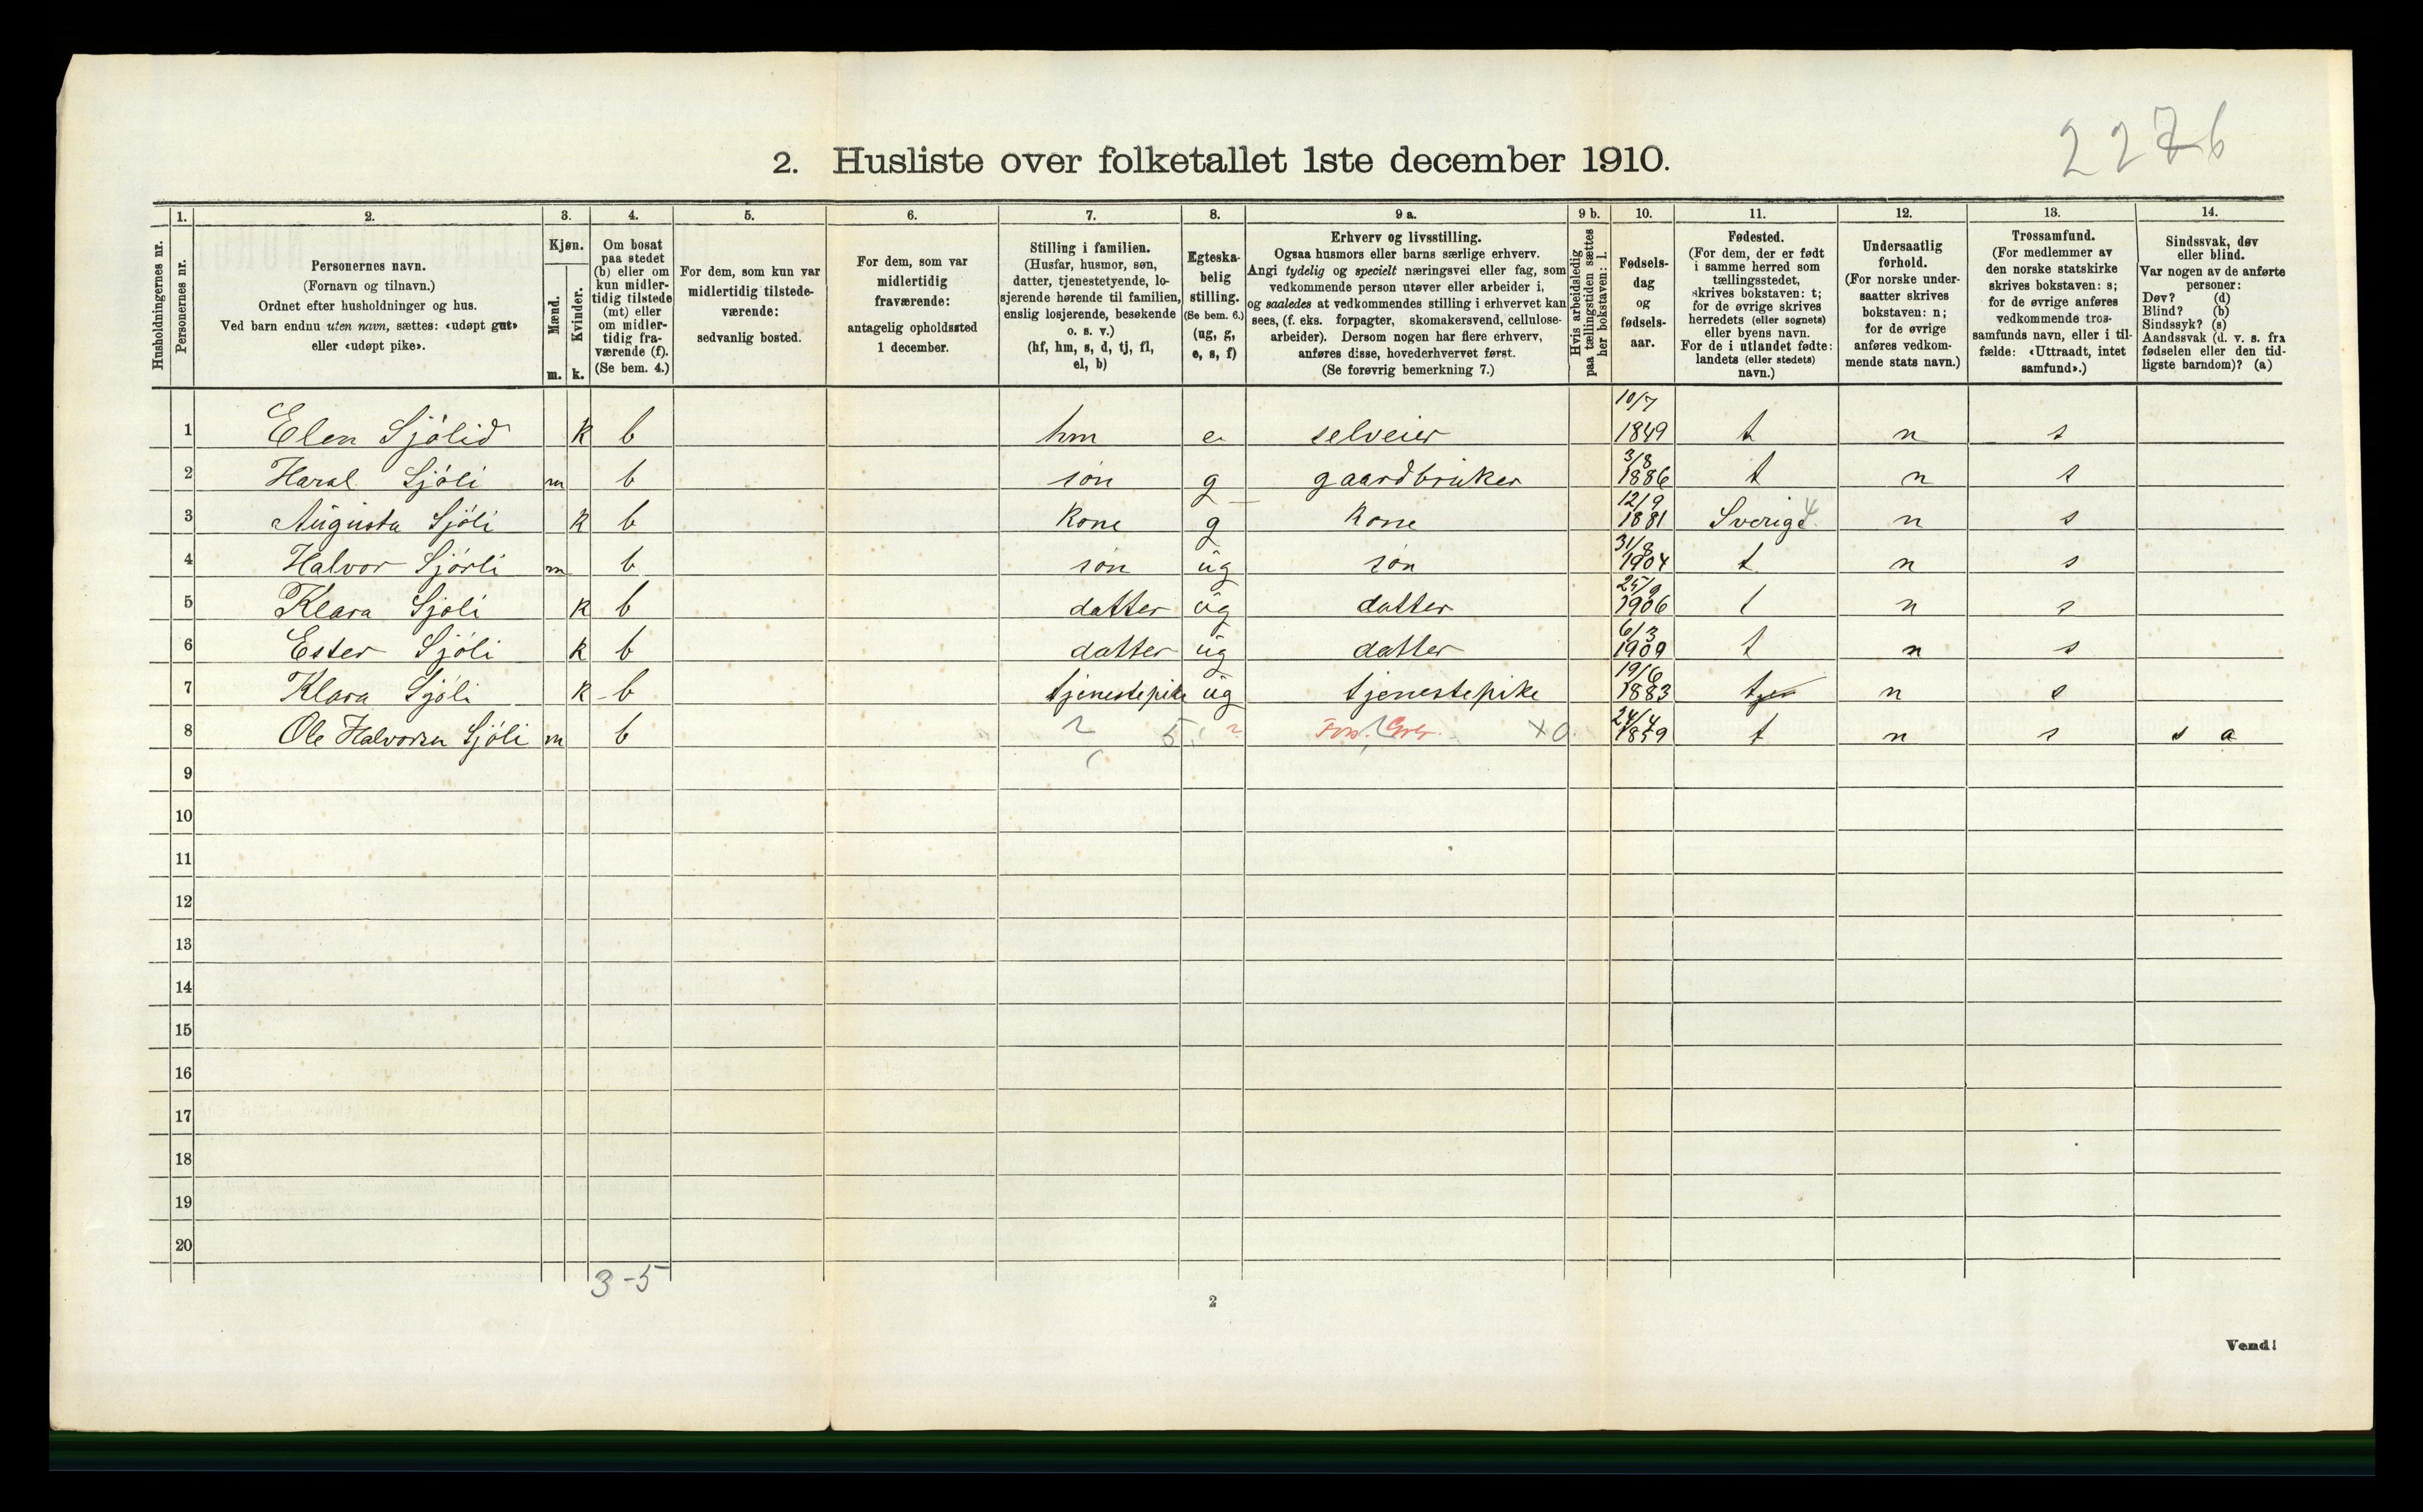 2276
2. Husliste over folketallet 1ste december 1910.
1. 2. 3. 4. 5. 6. 7. 8. 9 a. 9 b. 10. 11. 12. 13. 14.
Husholdningernes nr.
Personernes nr.
Personernes navn.
(Fornavn og tilnavn.)
Ordnet efter husholdninger og hus.
Ved barn endnu uten navn, sættes: «udøpt gut»
eller «udøpt pike».
Kjøn.
Mænd.
Kvinder.
m. k.
Om bosat
paa stedet
(b) eller om
kun midler-
tidig tilstede
(mt) eller
om midler-
tidig fra-
værende (f).
(Se bem. 4.)
For dem, som kun var
midlertidig tilstede-
værende:
sedvanlig bosted.
For dem, som var
midlertidig
fraværende:
antagelig opholdssted
1 december.
Stilling i familien.
(Husfar, husmor, søn,
datter, tjenestetyende, lo-
sjerende hørende til familien,
enslig losjerende, besøkende
o. s. v.)
(hf, hm, s, d, tj, fl,
el, b)
Egteska-
belig
stilling.
(Se bem. 6.)
(ug, g,
e, s, f)
Erhverv og livsstilling.
Ogsaa husmors eller barns særlige erhverv.
Angi tydelig og specielt næringsvei eller fag, som
vedkommende person utøver eller arbeider i,
og saaledes at vedkommendes stilling i erhvervet kan
sees, (f. eks. forpagter, skomakersvend, cellulose-
arbeider). Dersom nogen har flere erhverv,
anføres disse, hovederhvervet først.
(Se forøvrig bemerkning 7.)
Hvis arbeidsledig
paa tællingstiden sættes
her bokstaven: l.
Fødsels-
dag
og
fødsels-
aar.
Fødested.
(For dem, der er født
i samme herred som
tællingsstedet,
skrives bokstaven: t;
for de øvrige skrives
herredets (eller sognets)
eller byens navn.
For de i utlandet fødte:
landets (eller stedets)
navn.)
Undersaatlig
forhold.
(For norske under-
saatter skrives
bokstaven: n;
for de øvrige
anføres vedkom-
mende stats navn.)
Trossamfund.
(For medlemmer av
den norske statskirke
skrives bokstaven: s;
for de øvrige anføres
vedkommende tros-
samfunds navn, eller i til-
fælde: «Uttraadt, intet
samfund».)
Sindssvak, døv
eller blind.
Var nogen av de anførte
personer:
Døv? (d)
Blind? (b)
Sindssyk? (s)
Aandssvak (d. v. s. fra
fødselen eller den tid-
ligste barndom)? (a)
10/7
1 Elen Sjölid k b hm e selveier 1849 t n s
3/8
2 Haral Sjöli m b søn g gaardbruker 1886 t n s
12/9
3 Augusta Sjöli k b kone g kone 1881 Sverige n s
31/8
4 Halvor Sjörli m b søn ug søn 1904 t n s
25/9
5 Klara Sjöli k b datter ug datter 1906 t n s
6/3
6 Ester Sjöli k b datter ug datter 1909 t n s
19/6
7 Klara Sjöli k b tjenestepike ug tjenestepike 1883 t n s
24/4
8 Ole Halvorsen Sjöli m b 5 ? x0 1859 t n s s a
9
10
11
12
13
14
15
16
17
18
19
20
3-5
2
Vend!